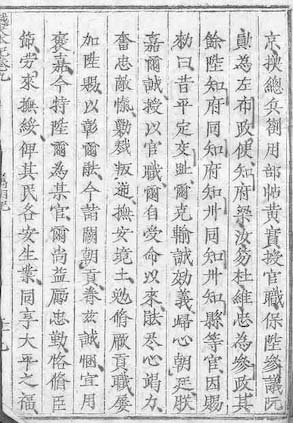 京撰總兵劄用部帥黃實授官職保陞參議阮
勛為左布政使知府梁汝笏杜維忠為參政其
餘陞知府同知府知州同知州知縣等官因賜
勑曰昔平定交趾爾克輸誠効義歸心朝廷朕
嘉爾誠授以官職爾自受命以來能悉心竭力
奮忠敵愾勦㓕叛逆撫安境土勉脩厥貢職屢
加陞賜以彰爾能今詣闕朝貢眷兹誠悃宜用
褒嘉今特陞爾為某官爾尚益勵忠勤恪脩臣
節勞來撫綏俾其民各安生業同亨大平之福